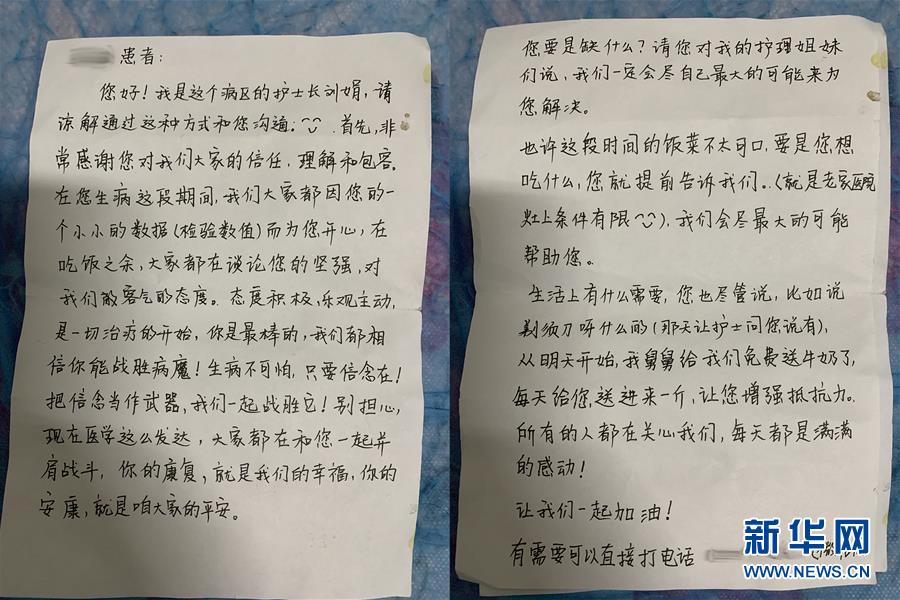 患者：
您好！我是这个病区的护士长刘娟，请
谅解通过这种方式和您沟通。首先，非
常感谢您对我们大家的信任、理解和包容。
在您生病这段期间，我们大家都因您的一
个小小的数据(检验数值)而为您开心，在
吃饭之余，大家都在谈论您的坚强，对
我们敬客气的态度。态度积极，乐观主动，
是一切治疗的开始，你是最棒的，我们都相
信你能战胜病魔！生病不可怕，只要信念在！
把信念当作武器，我们一起战胜它！别担心，
现在医学这么发达，大家都在和您一起并
肩战斗，你的康复，就是我们的幸福，你的
安康，就是咱大家的平安。
您要是缺什么？请您对我的护理姐妹
们说，我们一定会尽自己最大的可能来为
您解决。
也许这段时间的饭菜不太可口，要是您想
吃什么，您就提前告诉我们。(就是老家医院
灶上条件有限)，我们会尽最大的可能
帮助您。
生活上有什么需要，您也尽管说，比如说
剃须刀呀什么的(那天让护士问您说有)，
从明天开始，我舅舅给我们免费送牛奶了，
每天给您送进来一斤，让您增强抵抗力。
所有的人都在关心我们，每天都是满满
的感动！
让我们一起加油！
有需要可以直接打电话
新华网
WWW.NEWS.CN